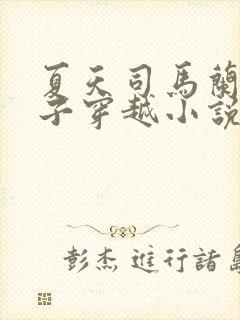 夏天司馬蘭
子穿越小說
彭杰進行諸